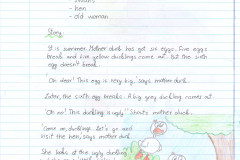 - hen
- old woman
Story:
It is summer. Mother duck has got six eggs. Five eggs
break and five yellow ducklings come out. But the sixth
egg doesn't break.
'Oh dear! This egg is very big,' says mother duck.
Later, the sixth egg breaks. A big grey duckling comes out.
'Oh no! This duckling is ugly.' shouts mother duck.
'Come on, ducklings. Let's go and
visit the hen,' says mother duck.
She looks at the ugly duckling